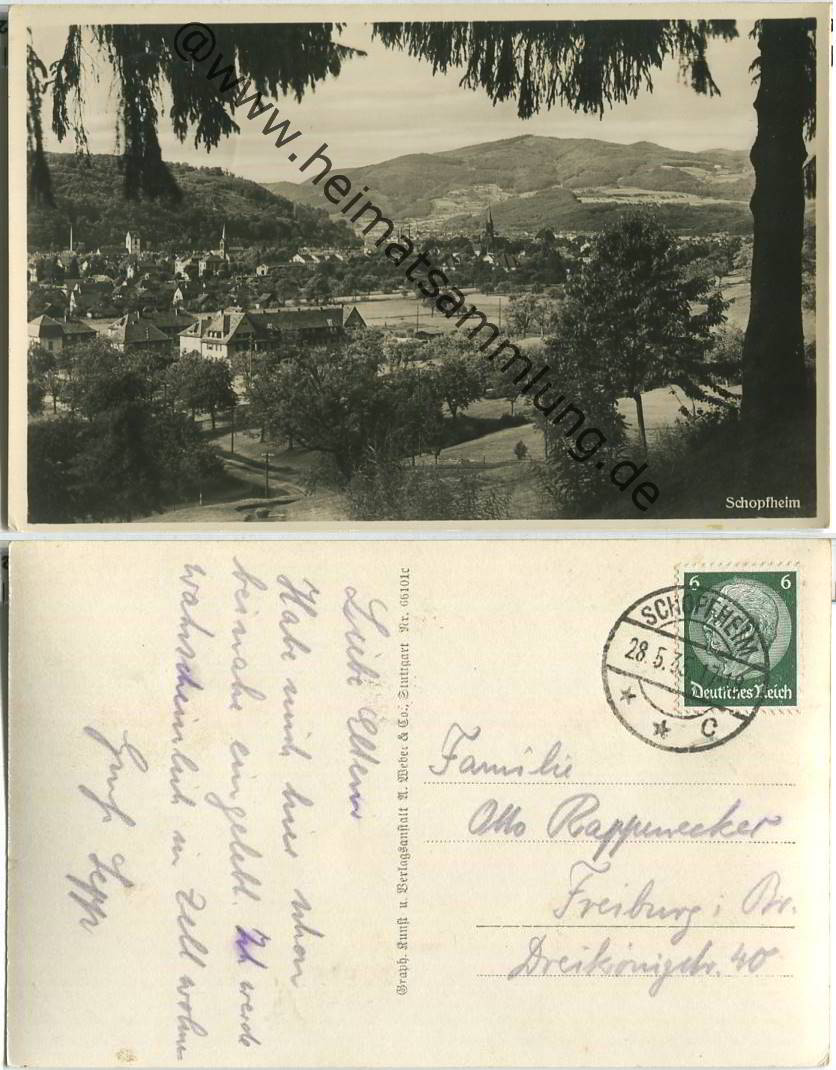 @www.heimatsammlung.de
Schopfheim
Liebe Eltern
Habe mich hier schon
beinahe eingelebt. Ich werde
wahrscheinlich in Zell wohnen
Gruß Sepp
Graph. Kunst u. Verlagsanstalt A. Weber & Co., Stuttgart Nr. 66101c
6 6
Deutsches Reich
SCHOPFHEIM
28.5.35.17-18
* * C
Familie
Otto Rappenecker
Freiburg i Br.
Dreikönigstr. 40